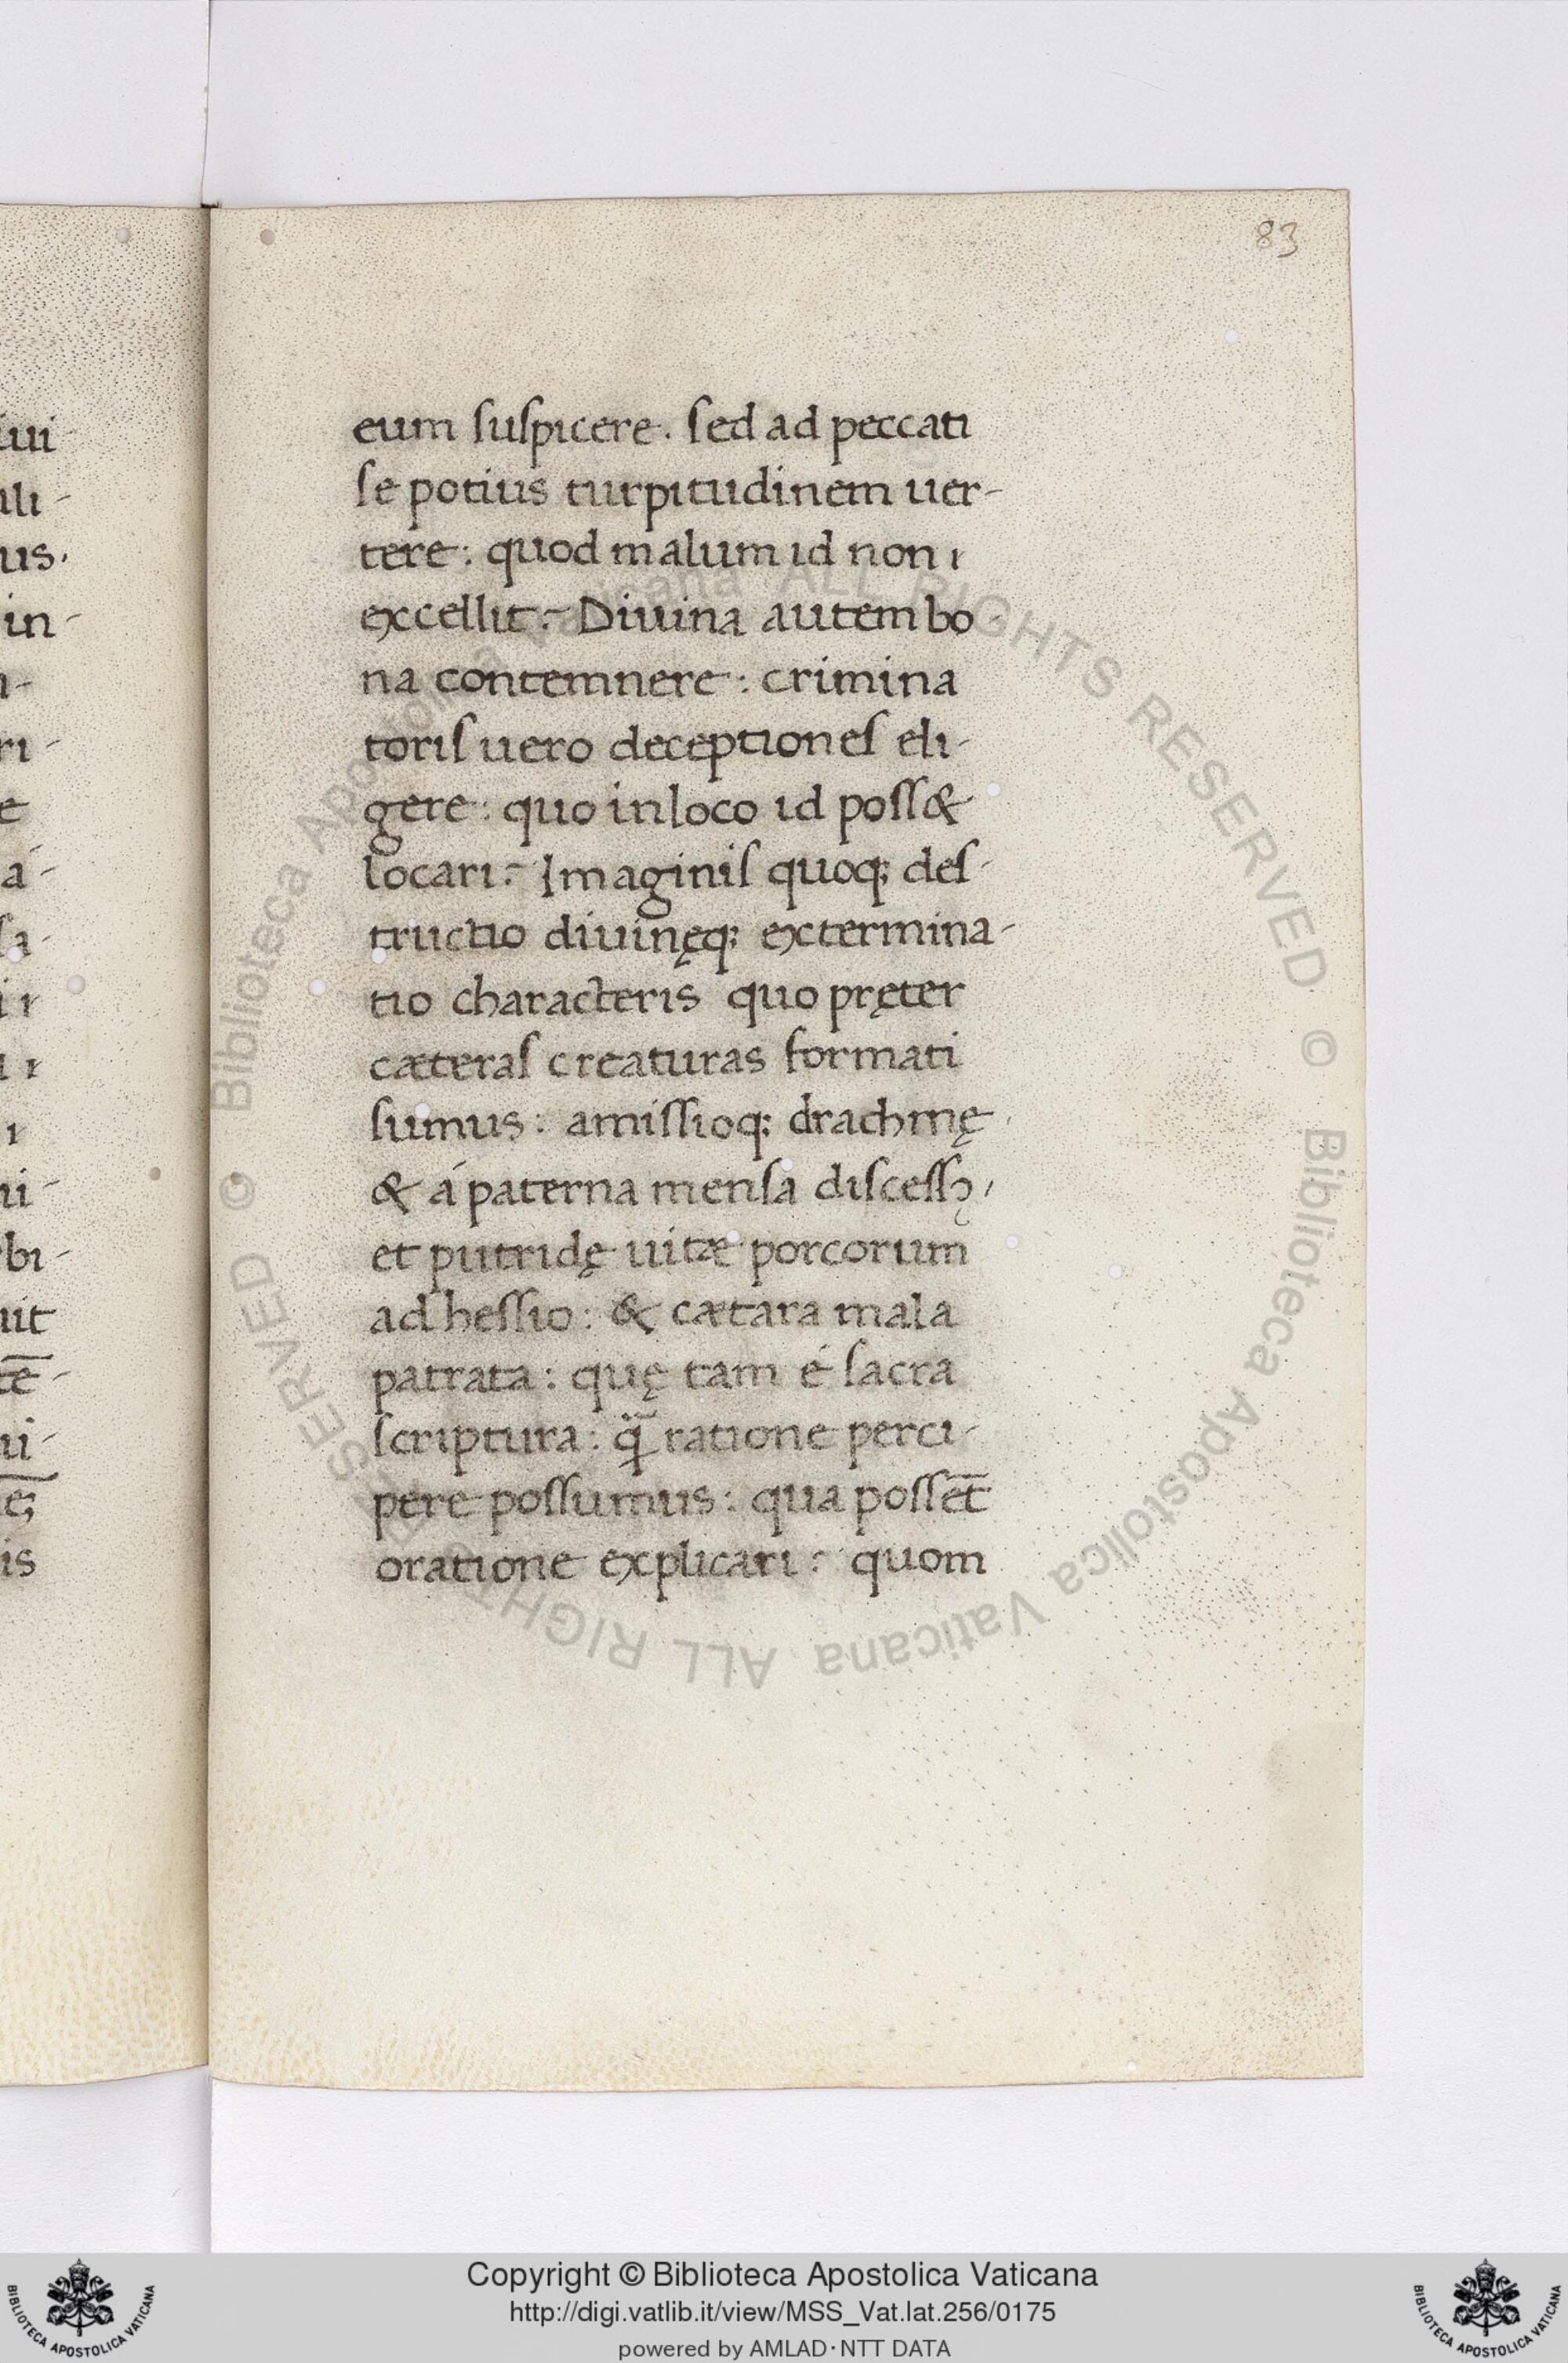 83
eum suspicere. sed ad peccati
se potius turpitudinem uer-
tere: quod malum id non ı
excellit:- Diuina autem bo-
na contemnere: crimina
toris uero deceptiones eli-
gere: quo in loco id poss&
locari:- Imaginis quoq; des-
tructio diuinęq; extermina-
tio characteris quo pręter
cæteras creaturas formati
sumus: amissioq; drachmę
& á paterna mensa discessꝫ,
et putridę uitæ porcorum
adhessio: & cætara mala
patrata: quę tam é sacra
scriptura: q̄ ratione perci-
pere possumus: qua posset̄
oratione explicari: quom
iui
ali-
us.
in-
ı-
ri-
e
á-
sa-
i ı
ı ı
ı
ni-
bi-
uit
tē-
ui-
ē;
is
© Biblioteca Apostolica Vaticana ALL RIGHTS RESERVED
© Biblioteca Apostolica Vaticana ALL RIGHTS RESERVED
Copyright © Biblioteca Apostolica Vaticana
http://digi.vatlib.it/view/MSS_Vat.lat.256/0175
powered by AMLAD·NTT DATA
BIBLIOTECA APOSTOLICA VATICANA
BIBLIOTECA APOSTOLICA VATICANA